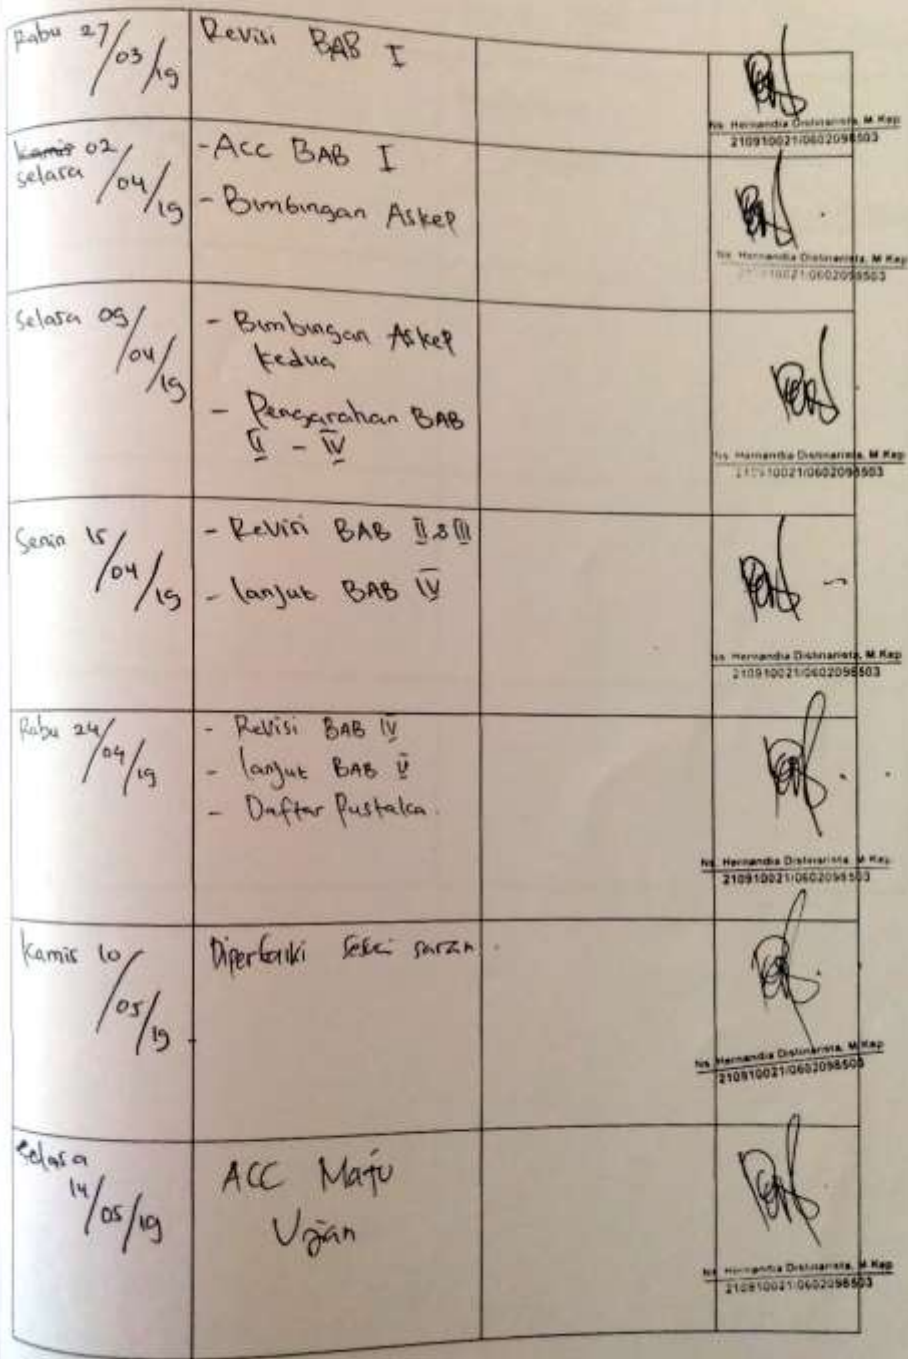 Rabu 27/03/19
Revisi BAB I
Ns. Hernandia Distinarista, M.Kep
210910021/0602098503
Kamis 02/04/19
selasa
- Acc BAB I
- Bimbingan Askep
Ns. Hernandia Distinarista, M.Kep
210910021/0602098503
Selasa 09/04/19
- Bimbingan Askep
kedua
- Pengarahan BAB
II - IV
Ns. Hernandia Distinarista, M.Kep
210910021/0602098503
Senin 15/04/19
- Revisi BAB II & III
- lanjut BAB IV
Ns. Hernandia Distinarista, M.Kep
210910021/0602098503
Rabu 24/04/19
- Revisi BAB IV
- lanjut BAB V
- Daftar Pustaka.
Ns. Hernandia Distinarista, M.Kep
210910021/0602098503
Kamis 10/05/19
Diperbaiki sesuai saran.
Ns. Hernandia Distinarista, M.Kep
210910021/0602098503
Selasa
14/05/19
ACC Maju
Ujian
Ns. Hernandia Distinarista, M.Kep
210910021/0602098503